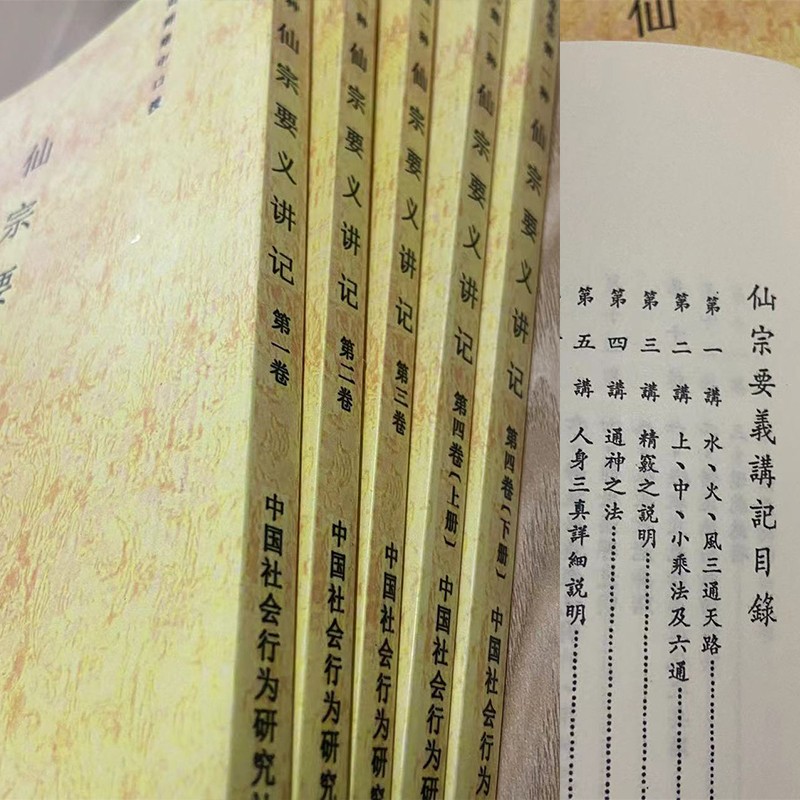 仙宗要
仙宗要义讲记 第一卷 中国社会行为研究
仙宗要义讲记 第二卷 中国社会行为研究
仙宗要义讲记 第三卷 中国社会行为研究
仙宗要义讲记 第四卷(上册) 中国社会行为研
仙宗要义讲记 第四卷(下册) 中国社会行为
仙
仙宗要義講記目錄
第一講 水、火、風三通天路
第二講 上、中、小乘法及六通
第三講 精竅之説明
第四講 通神之法
第五講 人身三真詳細説明